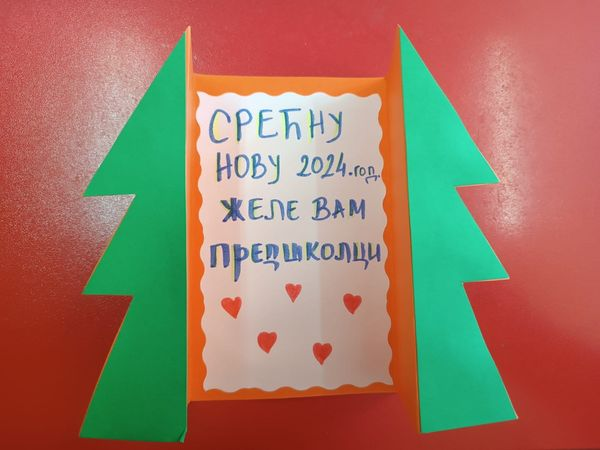 СРЕЋНУ
НОВУ 2024.год.
ЖЕЛЕ ВАМ
ПРЕДШКОЛЦИ